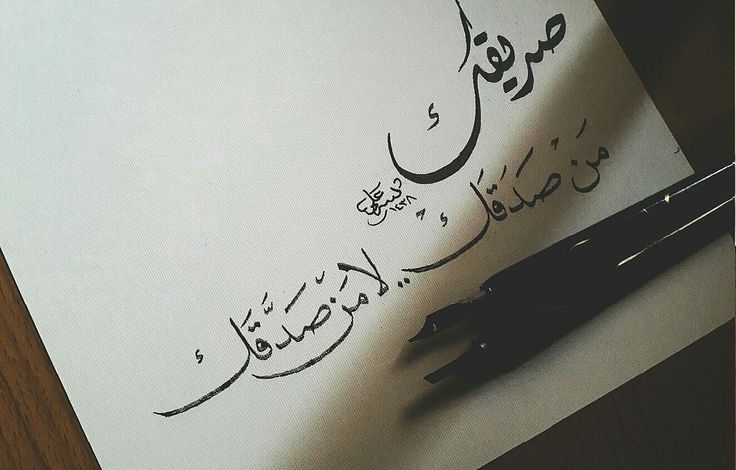 صديقك
مَنْ صَدَقَكَ
.. لا مَنْ صَدَّقَك
١٤٣٨